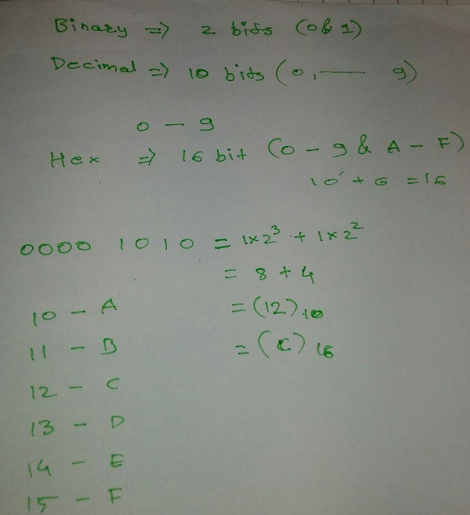 Binary => 2 bits (0 & 1)
Decimal => 10 bits (0, — 9)
0 - 9
Hex => 16 bit (0 - 9 & A - F)
10 + 6 = 16
0000 1010 = 1×2³ + 1×2²
= 8 + 4
10 - A = (12)₁₀
11 - B = (C)₁₆
12 - C
13 - D
14 - E
15 - F